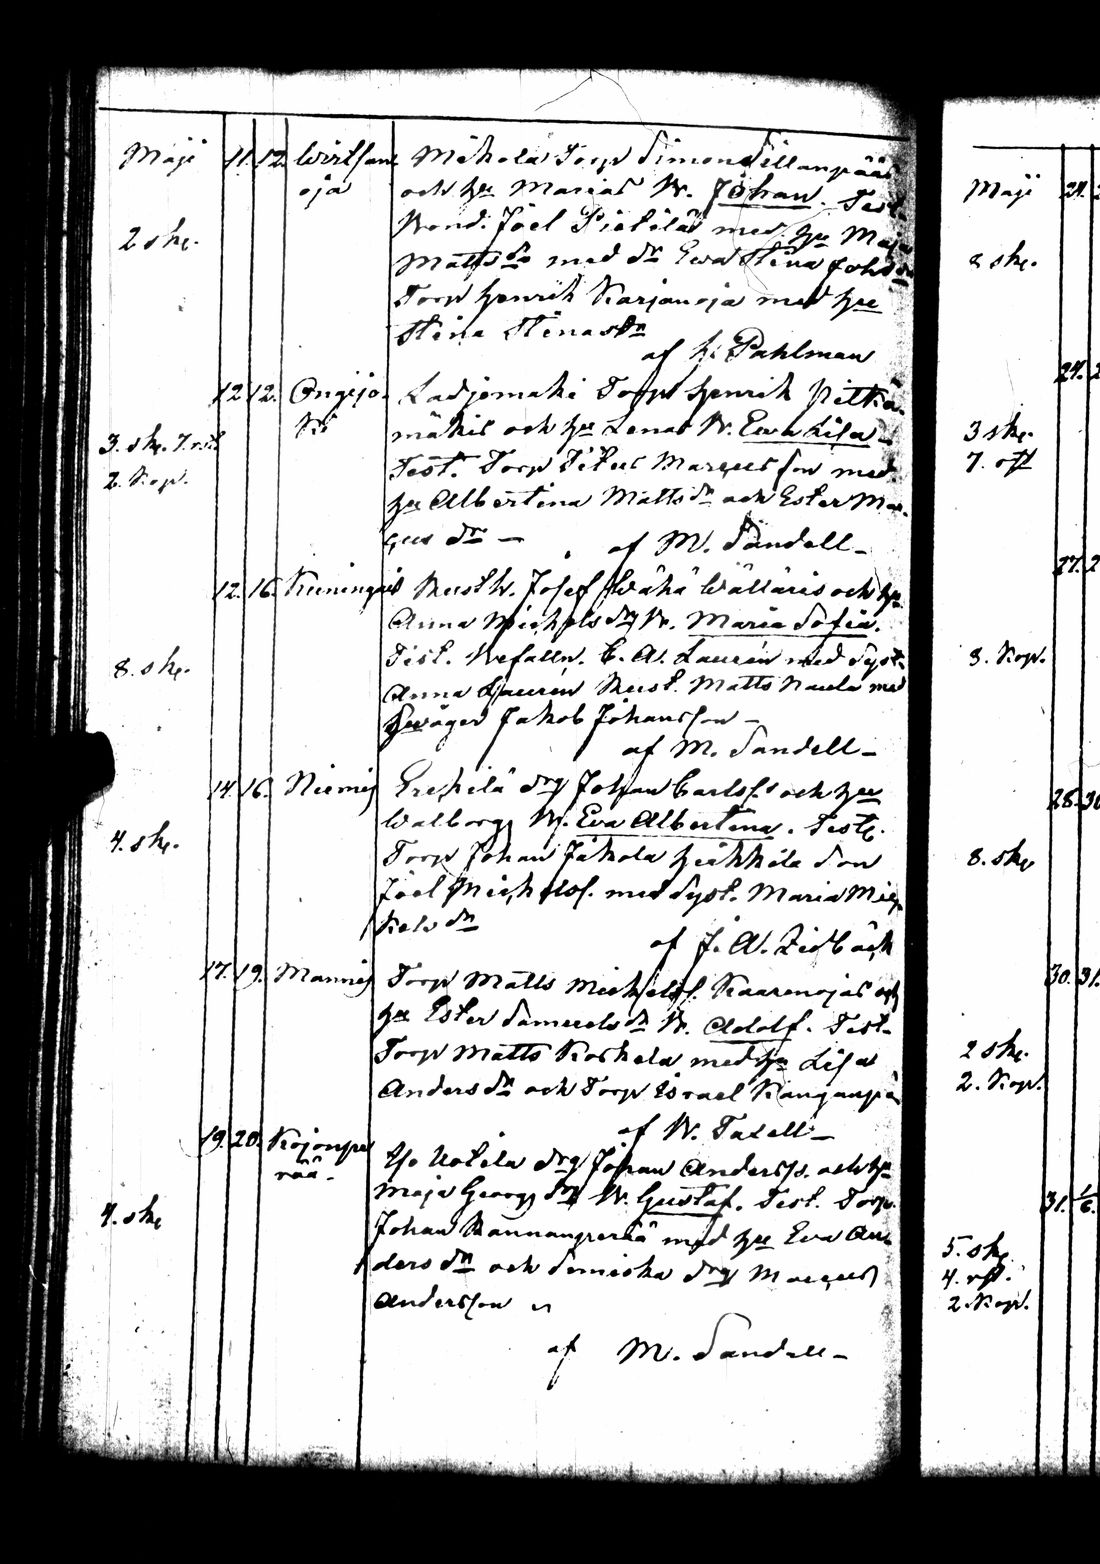 Maji 11. 12. Wirtsan
oja
2 sk.
Mikola Torp Simon Sillanpää
och hu Marias W. Johan. Test.
Bond. Joel Pietilä med hu Maja
Matts dr med dr Ewa Stina Johs dr
Torp Henrik Karjanoja med hu
Stina Stinas dr
af H. Pahlman
12 12. Ongijo
ki
3. sk. 7. rst
2. Kop.
Ladjomaki Torp Henrik Pitkä-
mäkis och hu Lenas W. Ewa Lisa
Test. Torp Titus Marcusson med
hu Albertina Matts dr och Ester Mar-
cus dr —
af M. Sandell —
12. 16. Kuningais
8. sk.
Rusth. Josef Wähä Wällaris och hu
Anna Michels dr W. Maria Sofia.
Test. C. A. Laurén med Syst.
Anna Laurén Rust. Matts Naula med
Swåger Jakob Johansson —
af M. Sandell —
14. 16. Niemis
4. sk.
Erkkilä drg Johan Carlss. och hu
Walborgs W. Eva Albertina. Test.
Torp Johan Jäkola Heikkilä Son
Joel Michelss. med Syst. Maria Mic-
kels dr
17. 19. Mannis
Torp Matts Michelss. Kaarenojas och
hu Ester Samuels dr W. Adolf. Test.
Torp Matts Koskela med hu Lisa
Anders dr och Torp Israel Kanganpä
af W. Taxell —
19. 20. Kojonpe
rää.
4. sk
Uotila drg Johan Anderss. och hu
Maja Georgs dr W. Gustaf. Test. Torp.
Johan Rannanperä med hu Eva An-
ders dr och drg Marcus
Andersson
af M. Sandell —
Maji 24.
8 sk.
24.
3 sk.
7. rst
27.
3. Kop.
28. 30
8. sk
30. 31.
2 sk.
2. Kop.
31. 1/6.
5. sk
4. rst.
2. Kop.